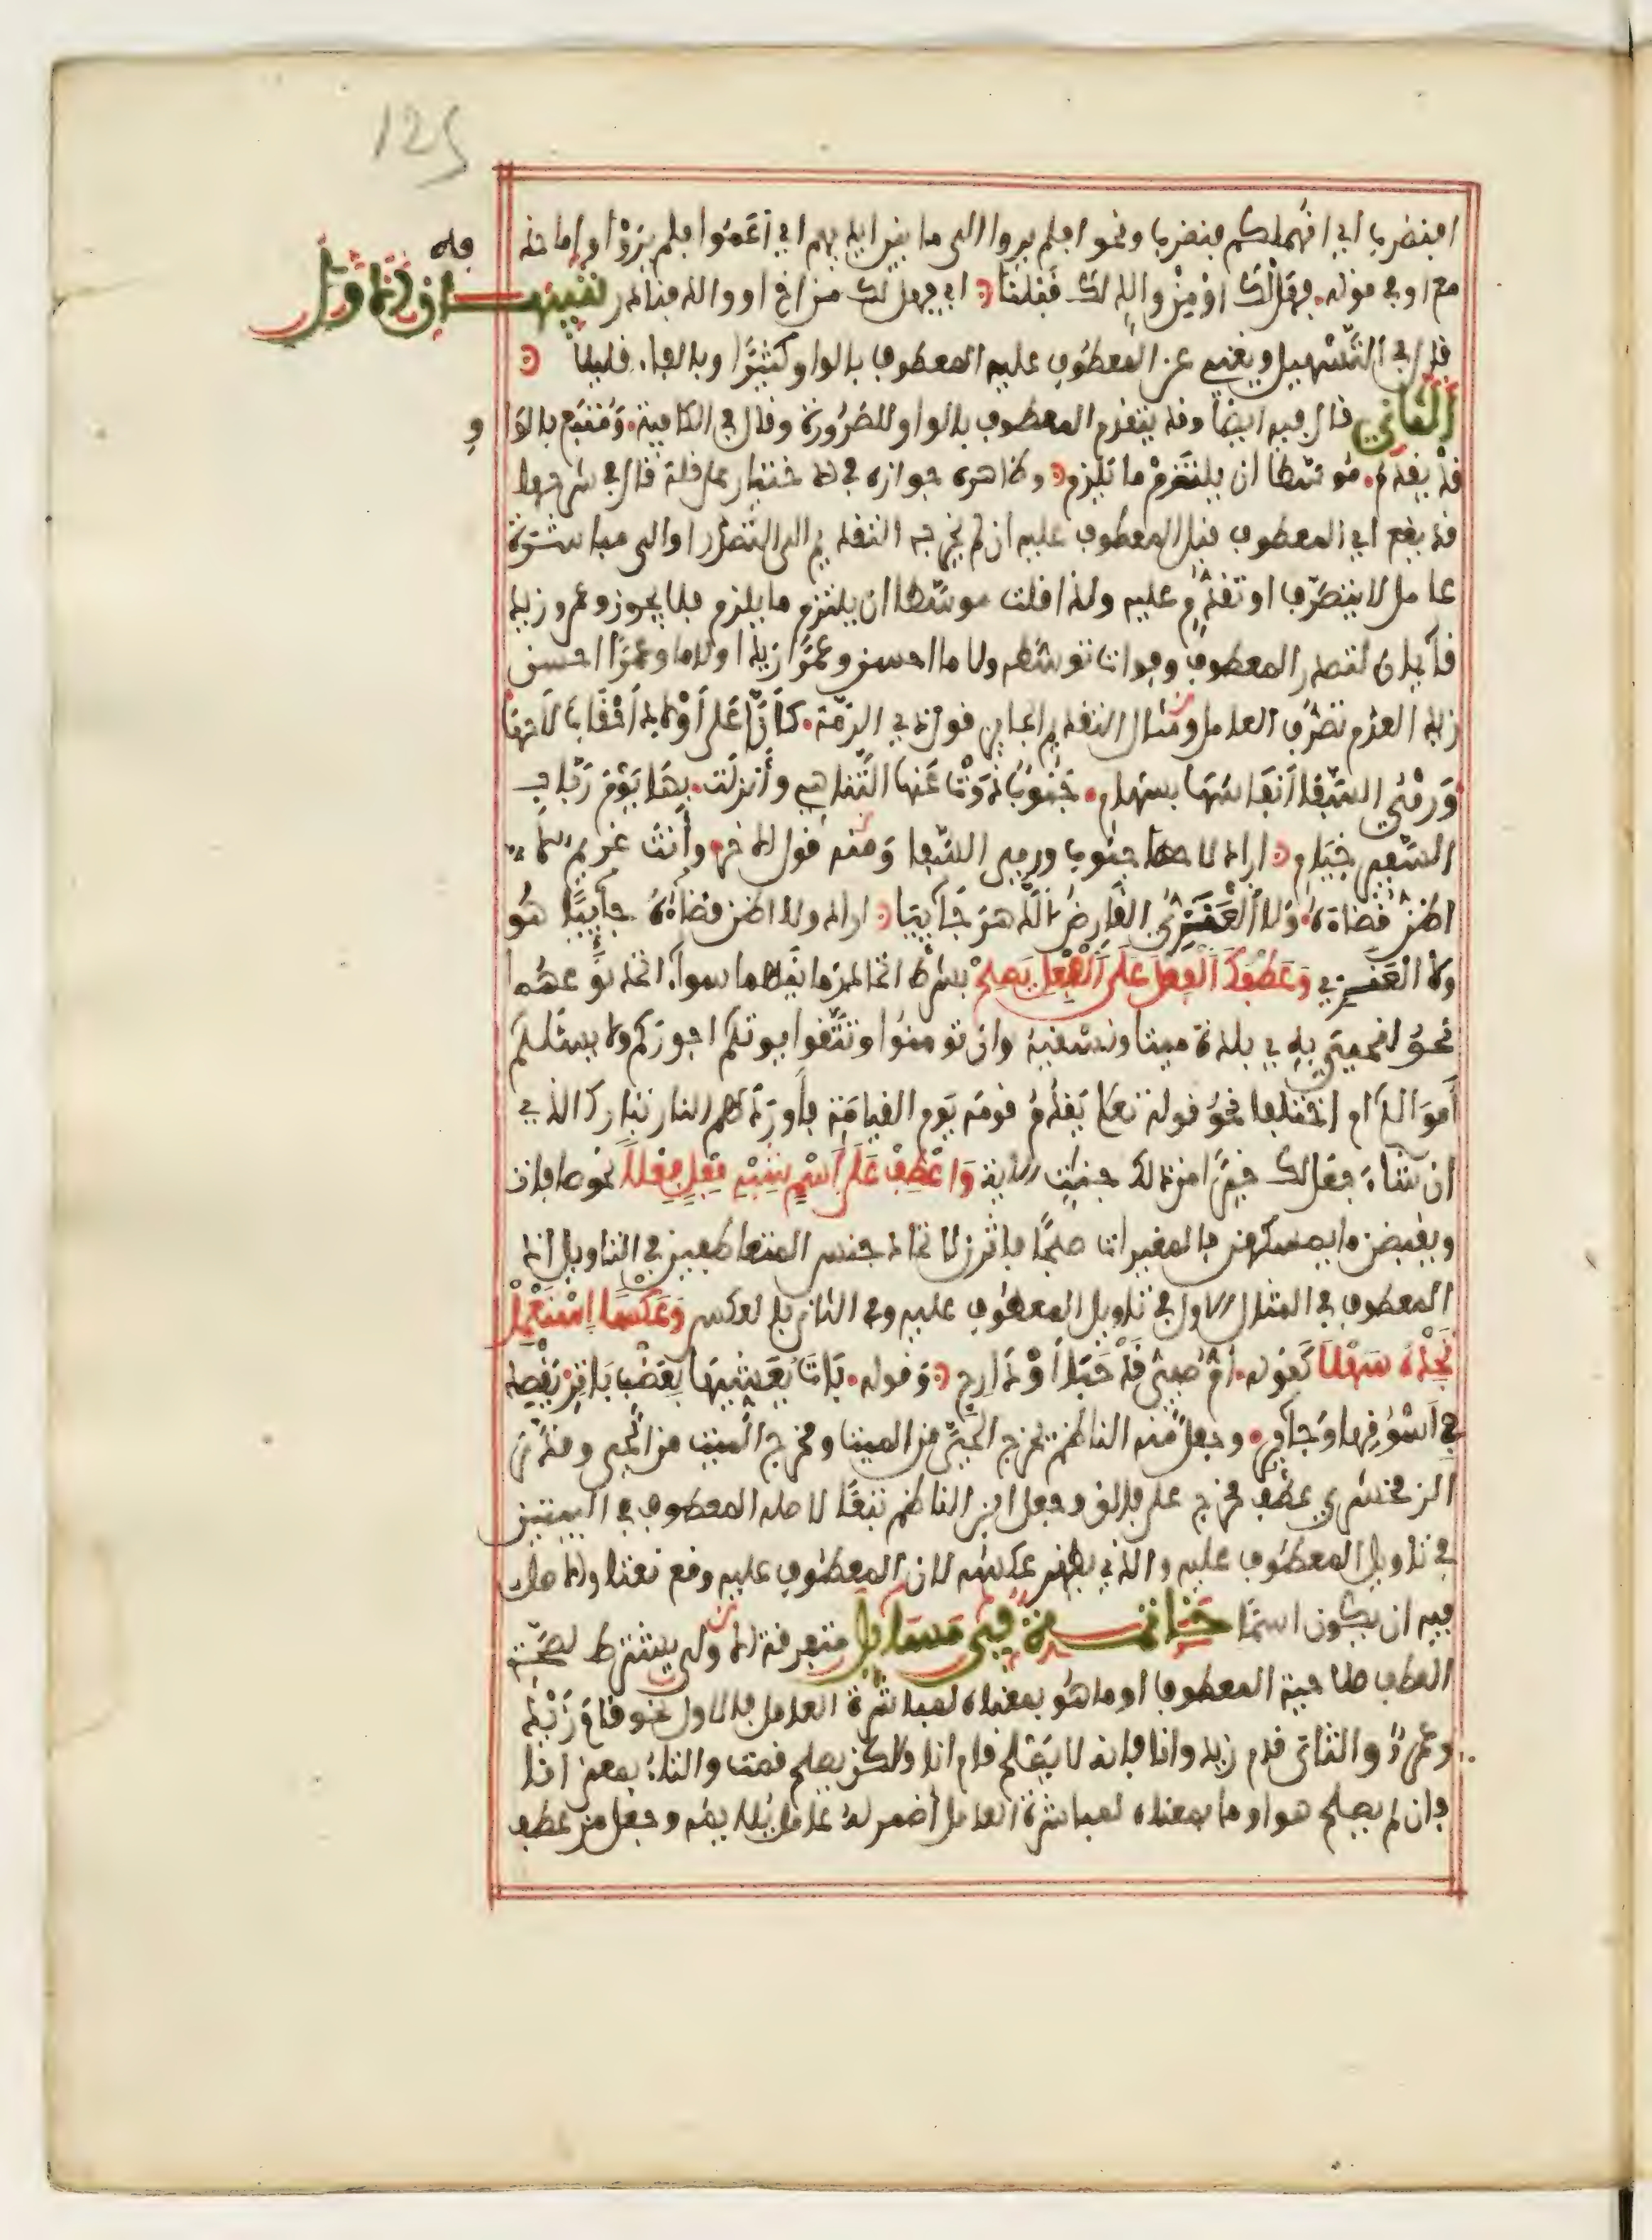 125
افنضرب اي انهملكم فنضرب ونحو افلم يروا الى ما بين ايديهم اي اعموا فلم يروا واما حذفه
مع او في قوله. فهل لك او من والد لك قبلنا. اي فهل لك من اخ او والد فنادر تنبيهان الاول
قال في التسهيل ويغني عن المعطوف عليه المعطوف بالواو كثيرا وبالفاء قليلا
الثاني قال فيه ايضا وقد يتقدم المعطوف بالواو للضرورة وقال في الكافية. ومتبع بالواو
قد يقدم. موسطا ان يلتزم ما يلزم. وظاهره جوازه في الاختيار على قلة قال في شرحها
قد يقع اي المعطوف قبل المعطوف عليه ان لم يخرجه التقديم الى التصدر او الى مباشرة
عامل لا يتصرف او تقدم عليه ولذا قلت موسطا ان يلتزم ما يلزم فلا يجوز وعمرو زيد
قائمان لتصدر المعطوف وفوات توسطه ولا ما احسن وعمرا زيدا ولا ما وعمرا احسن
زيدا لعدم تصرف العامل ومثال التقديم الجايز قول ذي الرمة. كانا على اولاد احقب لاحها
ورمي السفا انفاسها بسهام. جنوب ذوت عنها التناهي وأنزلت. بها يوم رباب
السفير خيام. اراد لاحها جنوب ورمي السفا ومنه قول الاخر وأنت غريم لا
اظن قضاءه. ولا العنزي القارظ الدهر جاييا. اراد ولا اظن قضاءه جاييا هو
ولا العنزي وعطفك الفعل على الفعل يصح بشرط اتحاد زمانيهما سواء اتحد نوعهما
نحو لنحيي به بلدة ميتا ونسقيه وان تومنوا وتتقوا يوتكم اجوركم ولا يسئلكم
أموالكم ام اختلفا نحو قوله تعلى يقدم قومه يوم القيامة فأوردهم النار تبارك الذي
ان شاء جعل لك خيرا من ذلك جنت الاية واعطف على اسم شبه فعل فعلا نحو صافات
ويقبضن ما يمسكهن فالمغيرات صبحا فاثرن لاتحاد جنس المتعاطفين في التاويل اذ
المعطوف في المثال الاول في تاويل المعطوف عليه وفي الثاني بالعكس وعكسا استعمل
تجده سهلا كقوله. أم صبي قد حبا أو دارج. وقوله. بات يعشيها بعضب باتر يقصد
في اسوقها وجاير. وجعل منه الناظم يخرج الحي من الميت ومخرج الميت من الحي وقدر
الزمخشري عطف مخرج على فالق وجعل ابن الناظم تبعا لاصله المعطوف في البيتين
في تاويل المعطوف عليه والذي يظهر عكسه لان المعطوف عليه وقع نعتا والاصل
فيه ان يكون اسما خاتمة في مسايل متفرقة الاولى يشترط لصحة
العطف صلاحية المعطوف او ما هو بمعناه لمباشرة العامل فالاول نحو قام زيد
وعمرو والثاني قام زيد وانا فانه لا يصلح قام انا ولكن يصلح قمت والتاء بمعنى انا
فان لم يصلح هو او ما بمعناه لمباشرة العامل أضمر له عامل يلايمه وجعل من عطف